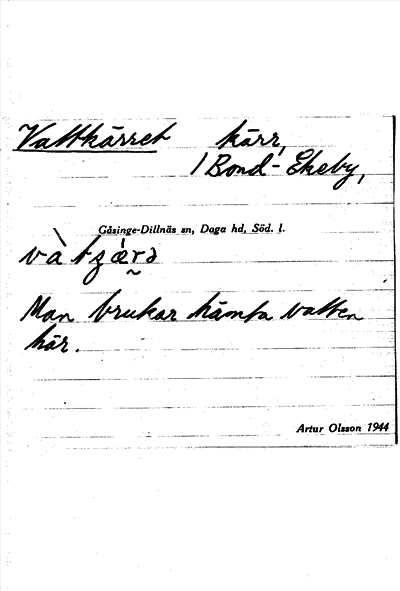 Vattkärret kärr,
1 Bond-Ekeby,
Gåsinge-Dillnäs sn, Daga hd, Söd. l.
Man brukar hämta vatten
här.
Artur Olsson 1944